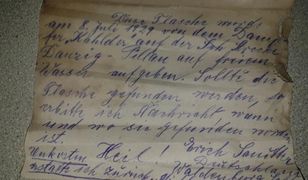 Diese Flasche wurde
am 8. Juli 1929 von dem Damp-
fer Kahlder auf der Joh
Danzig - Pillau auf freiem
Wasser aufgeben. Sollte die
Flasche gefunden werden, so
erbitte ich Nachricht, wann
und wo sie gefunden worden
ist.
Heil! Erich
Unkosten
erstatte ich zurück.